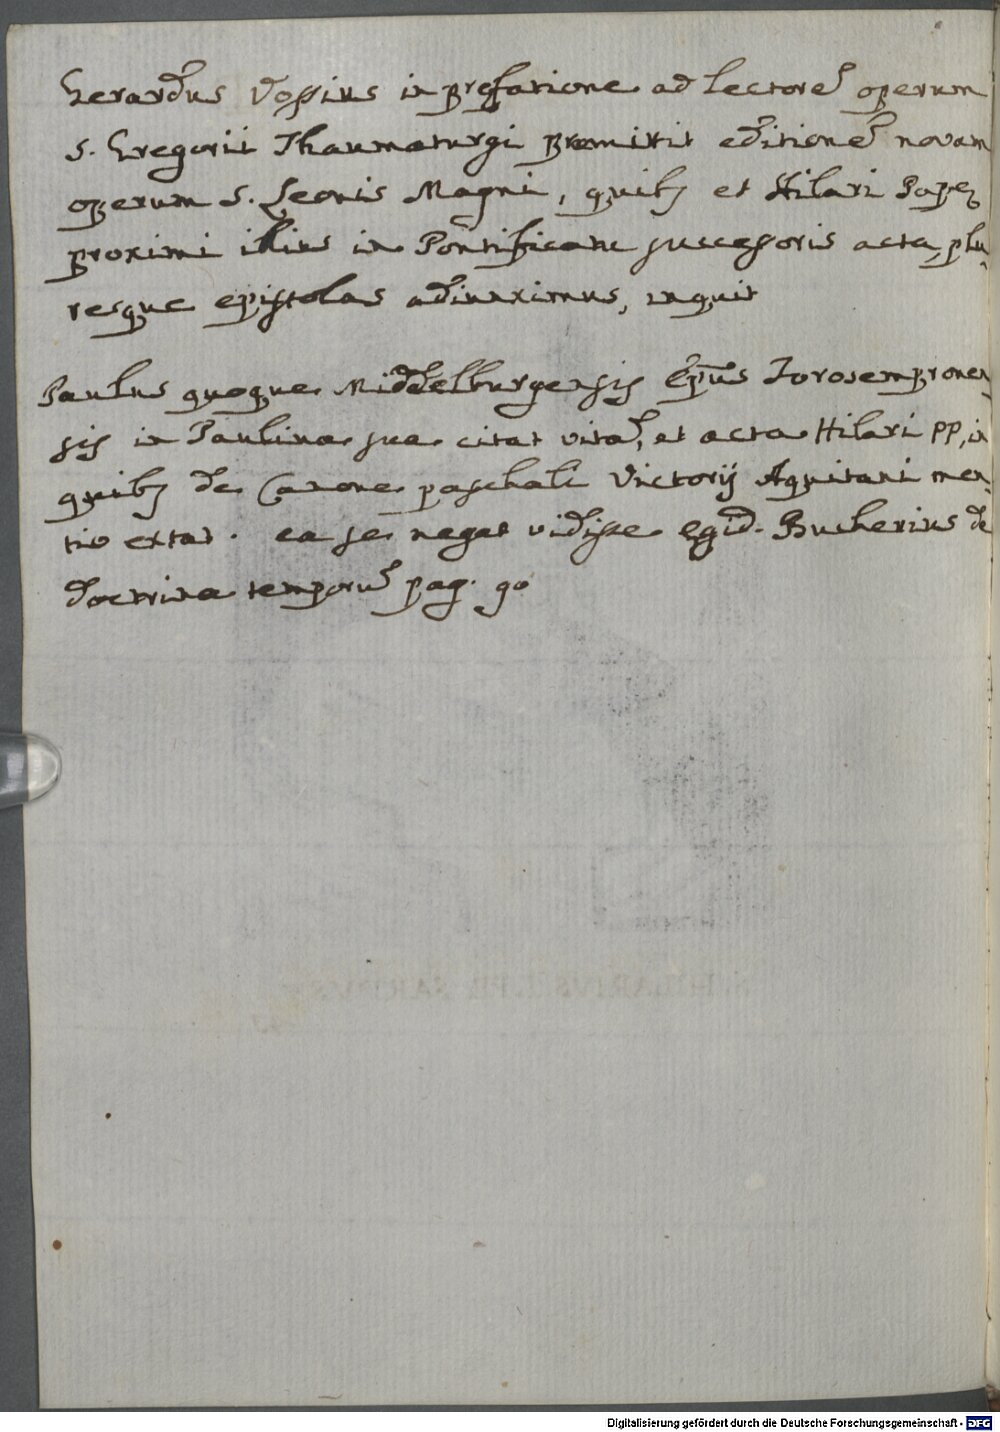 Gerardus Vossius in præfatione ad lectorē operum
S. Gregorii Thaumaturgi promittit editionē novam
operum S. Leonis Magni, quibꝫ et Hilari Papę
proximi illius in Pontificatu successoris acta, plu-
resque epistolas adiunximus, inquit
Paulus quoque Middelburgensis Ep̄us Forosempronen-
sis in Paulina sua citat vitā, et acta Hilari PP, in
quibꝫ de Canone paschali Victorij Aquitani men-
tio extat. ea se negat vidisse Egid. Bucherius de
doctrina temporū pag. 90
S. HILARIVS I. PP. SARDVS
Digitalisierung gefördert durch die Deutsche Forschungsgemeinschaft - DFG